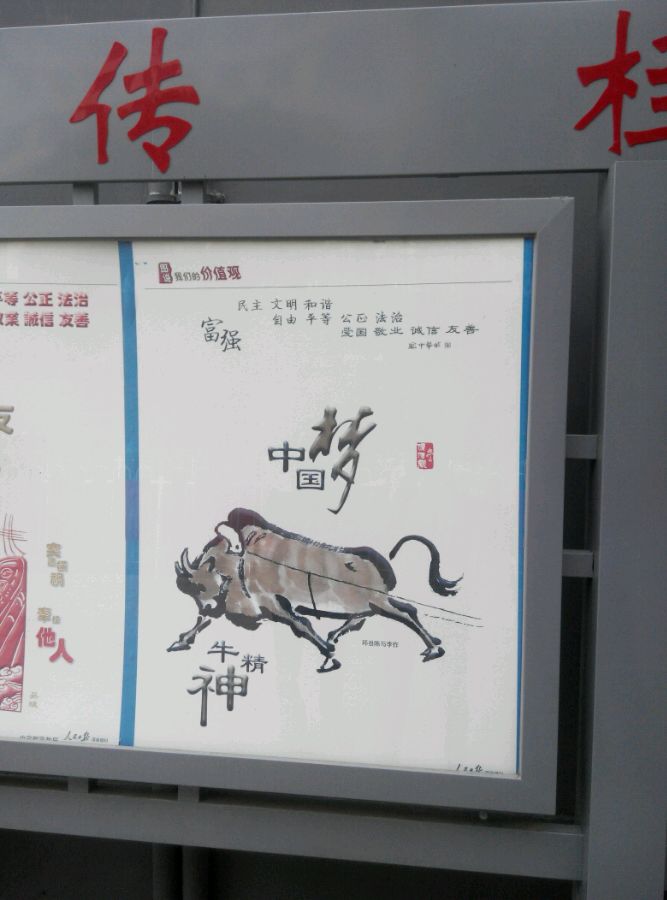 传 桂
平等 公正 法治
敬業 誠信 友善
友
他人
人民日报
图说我们的价值观
富强 民主 文明 和谐
自由 平等 公正 法治
爱国 敬业 诚信 友善
中国梦
牛精神
人民日报